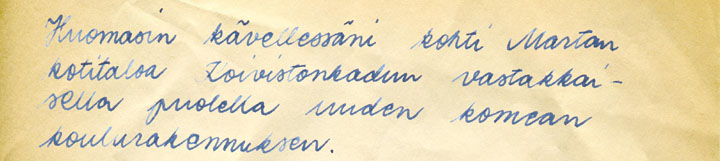 Huomasin kävellessäni kohti Martan
kotitaloa Koivistonkadun vastakkai-
sella puolella uuden komean
koulurakennuksen.